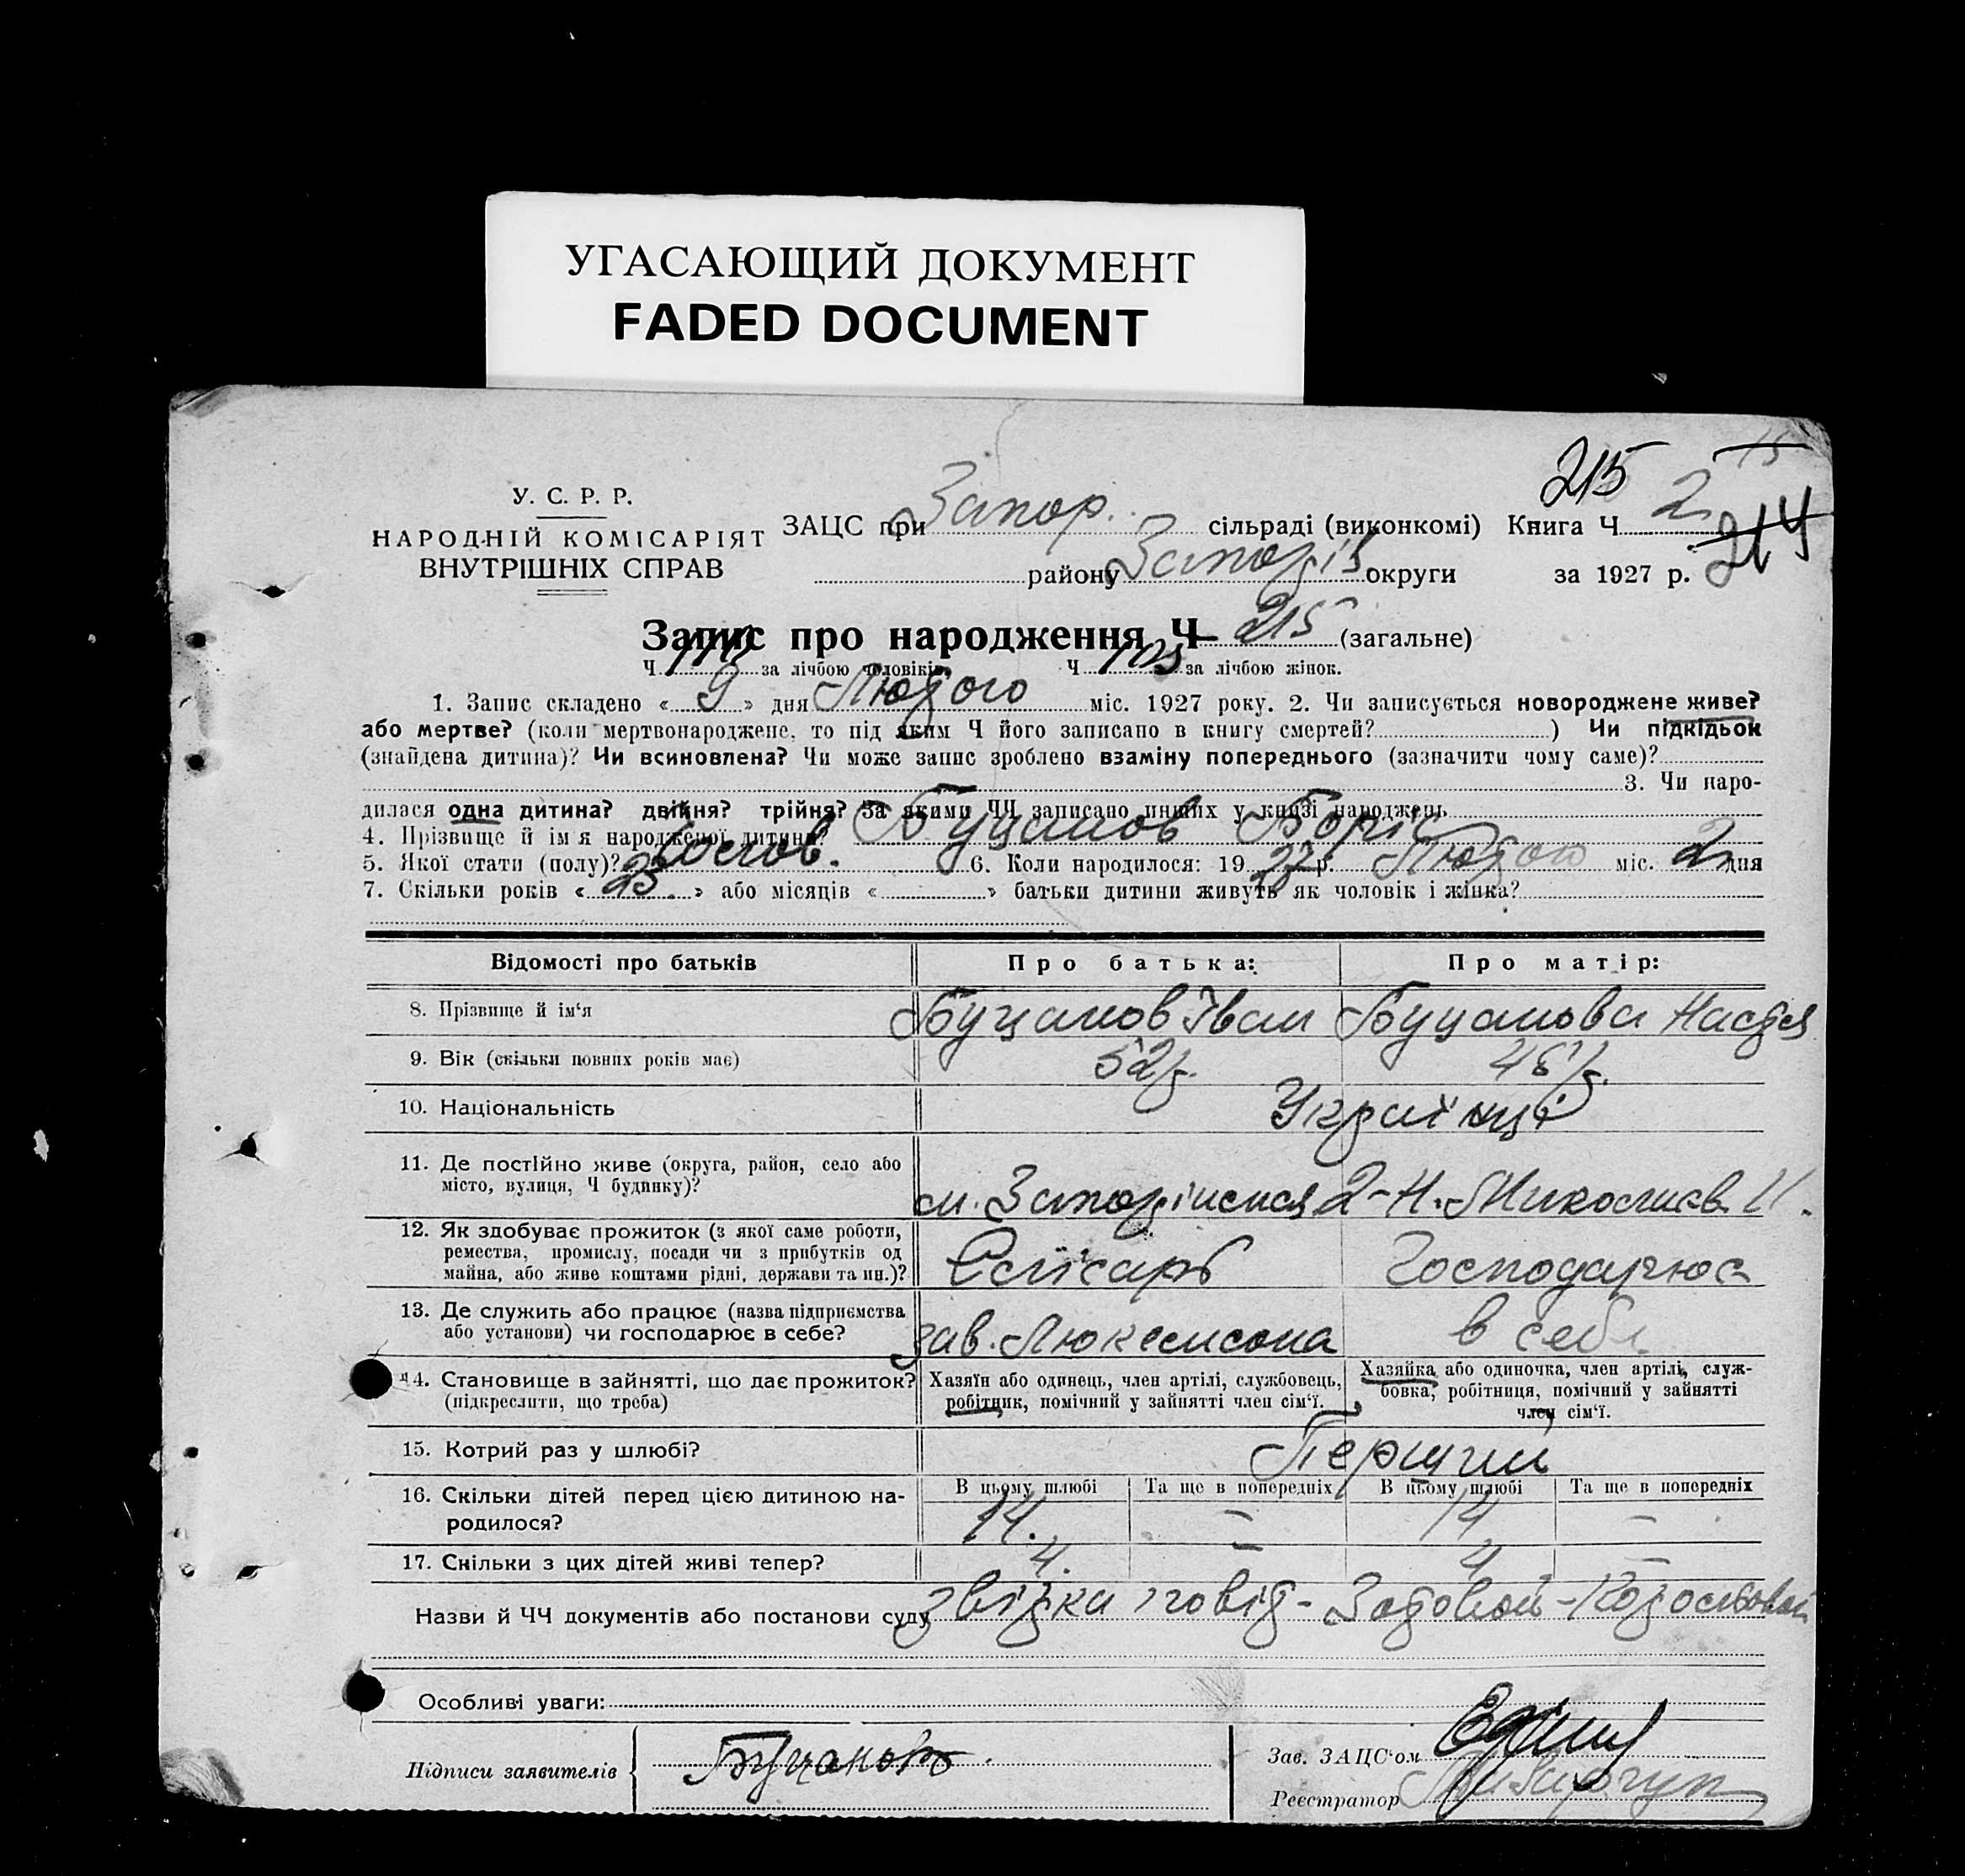 УГАСАЮЩИЙ ДОКУМЕНТ
FADED DOCUMENT
215
У. С. Р. Р.
НАРОДНІЙ КОМІСАРІЯТ
ВНУТРІШНІХ СПРАВ
ЗАЦС при Запор. сільраді (виконкомі) Книга Ч 2
району Запоріз округи за 1927 р. 214
Запис про народження Ч 215 (загальне)
Ч за лічбою чоловіків. Ч 103 за лічбою жінок.
1. Запис складено « 9 » дня Лютого міс. 1927 року. 2. Чи записується новороджене живе?
або мертве? (коли мертвонароджене, то під яким Ч його записано в книгу смертей? ) Чи підкідьок
(знайдена дитина)? Чи всиновлена? Чи може запис зроблено взаміну попереднього (зазначити чому саме)?
3. Чи наро-
дилася одна дитина? двійня? трійня? За якими ЧЧ записано инших у книзі народжень
4. Прізвище й ім'я народженої дитини? Буцанов Боріс
5. Якої стати (полу)? 6. Коли народилося: 19 27 р. Лютого міс. 2 дня
7. Скільки років « 23 » або місяців « » батьки дитини живуть як чоловік і жінка?
Відомості про батьків Про батька: Про матір:
8. Прізвище й ім'я Буцанов Іван Буцанова Настя
9. Вік (скільки повних років має) 52 р. 46 р.
10. Національність Українці
11. Де постійно живе (округа, район, село або
місто, вулиця, Ч будинку)? м. Запоріжжя 2-Н. Миколаєв
12. Як здобуває прожиток (з якої саме роботи,
ремества, промислу, посади чи з прибутків од
майна, або живе коштами рідні, держави та ин.)? Слісарь Господарює
13. Де служить або працює (назва підприємства
або установи) чи господарює в себе? зав. в себе
14. Становище в зайнятті, що дає прожиток?
(підкреслити, що треба)
Хазяїн або одинець, член артілі, службовець,
робітник, помічний у зайнятті член сім'ї.
Хазяйка або одиночка, член артілі, служ-
бовка, робітниця, помічний у зайнятті
член сім'ї.
15. Котрий раз у шлюбі? Перший
16. Скільки дітей перед цією дитиною на-
родилося?
В цьому шлюбі Та ще в попередніх В цьому шлюбі Та ще в попередніх
14. – 14 –
17. Скільки з цих дітей живі тепер? 4. – 4 –
Назви й ЧЧ документів або постанови суду
Особливі уваги:
Підписи заявителів Буцановъ
Зав. ЗАЦС'ом
Реєстратор